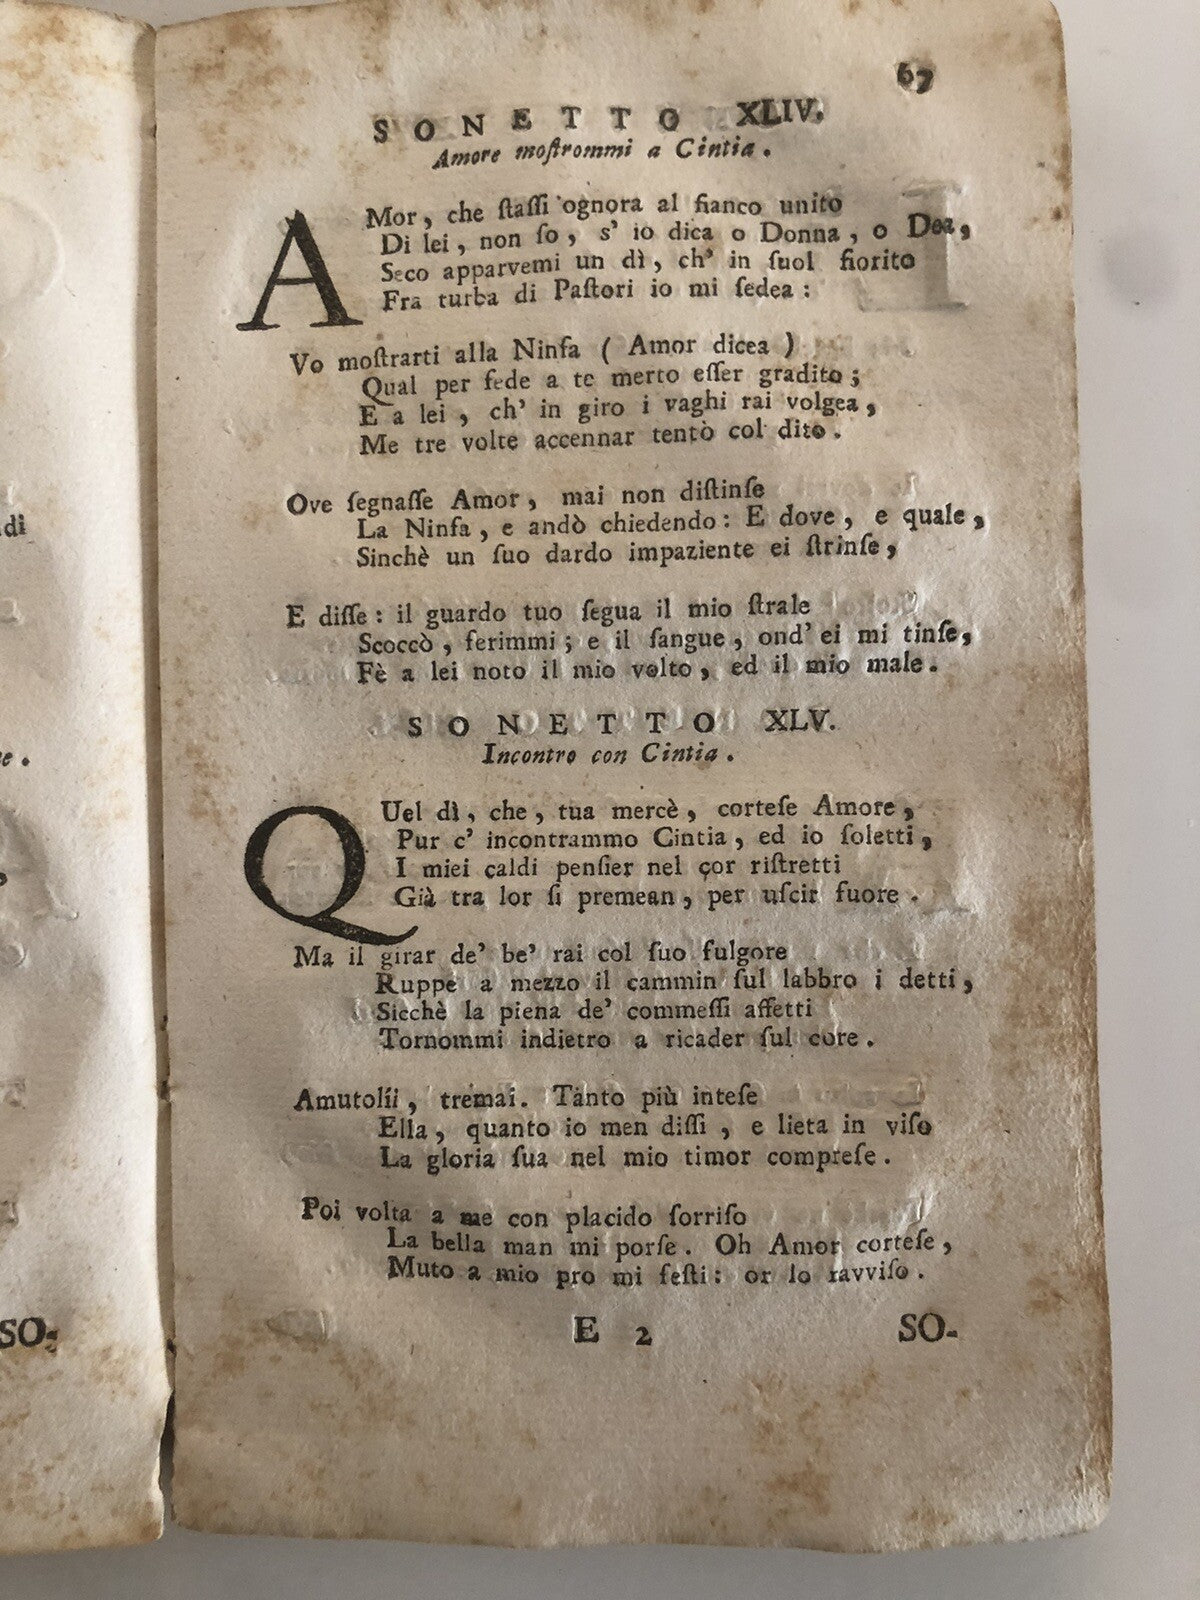 67
SONETTO XLIV.
Amore moſtrommi a Cintia.
AMor, che ſtaſſi ognora al fianco unito
Di lei, non ſo, s' io dica o Donna, o Dea,
Seco apparvemi un dì, ch' in ſuol fiorito
Fra turba di Paſtori io mi ſedea:
Vo moſtrarti alla Ninfa ( Amor dicea )
Qual per fede a te merto eſſer gradito;
E a lei, ch' in giro i vaghi rai volgea,
Me tre volte accennar tentò col dito.
Ove ſegnaſſe Amor, mai non diſtinſe
La Ninfa, e andò chiedendo: E dove, e quale,
Sinchè un ſuo dardo impaziente ei ſtrinſe,
E diſſe: il guardo tuo ſegua il mio ſtrale
Scoccò, ferimmi; e il ſangue, ond' ei mi tinſe,
Fè a lei noto il mio volto, ed il mio male.
SONETTO XLV.
Incontro con Cintia.
QUel dì, che, tua mercè, corteſe Amore,
Pur c' incontrammo Cintia, ed io ſoletti,
I miei caldi penſier nel cor riſtretti
Già tra lor ſi premean, per uſcir fuore.
Ma il girar de' be' rai col ſuo fulgore
Ruppe a mezzo il cammin ſul labbro i detti,
Sicchè la piena de' commeſſi affetti
Tornommi indietro a ricader ſul core.
Amutolíi, tremai. Tanto più inteſe
Ella, quanto io men diſſi, e lieta in viſo
La gloria ſua nel mio timor compreſe.
Poi volta a me con placido ſorriſo
La bella man mi porſe. Oh Amor corteſe,
Muto a mio pro mi feſti: or lo ravviſo.
E 2 SO-
dì
e.
,
SO-